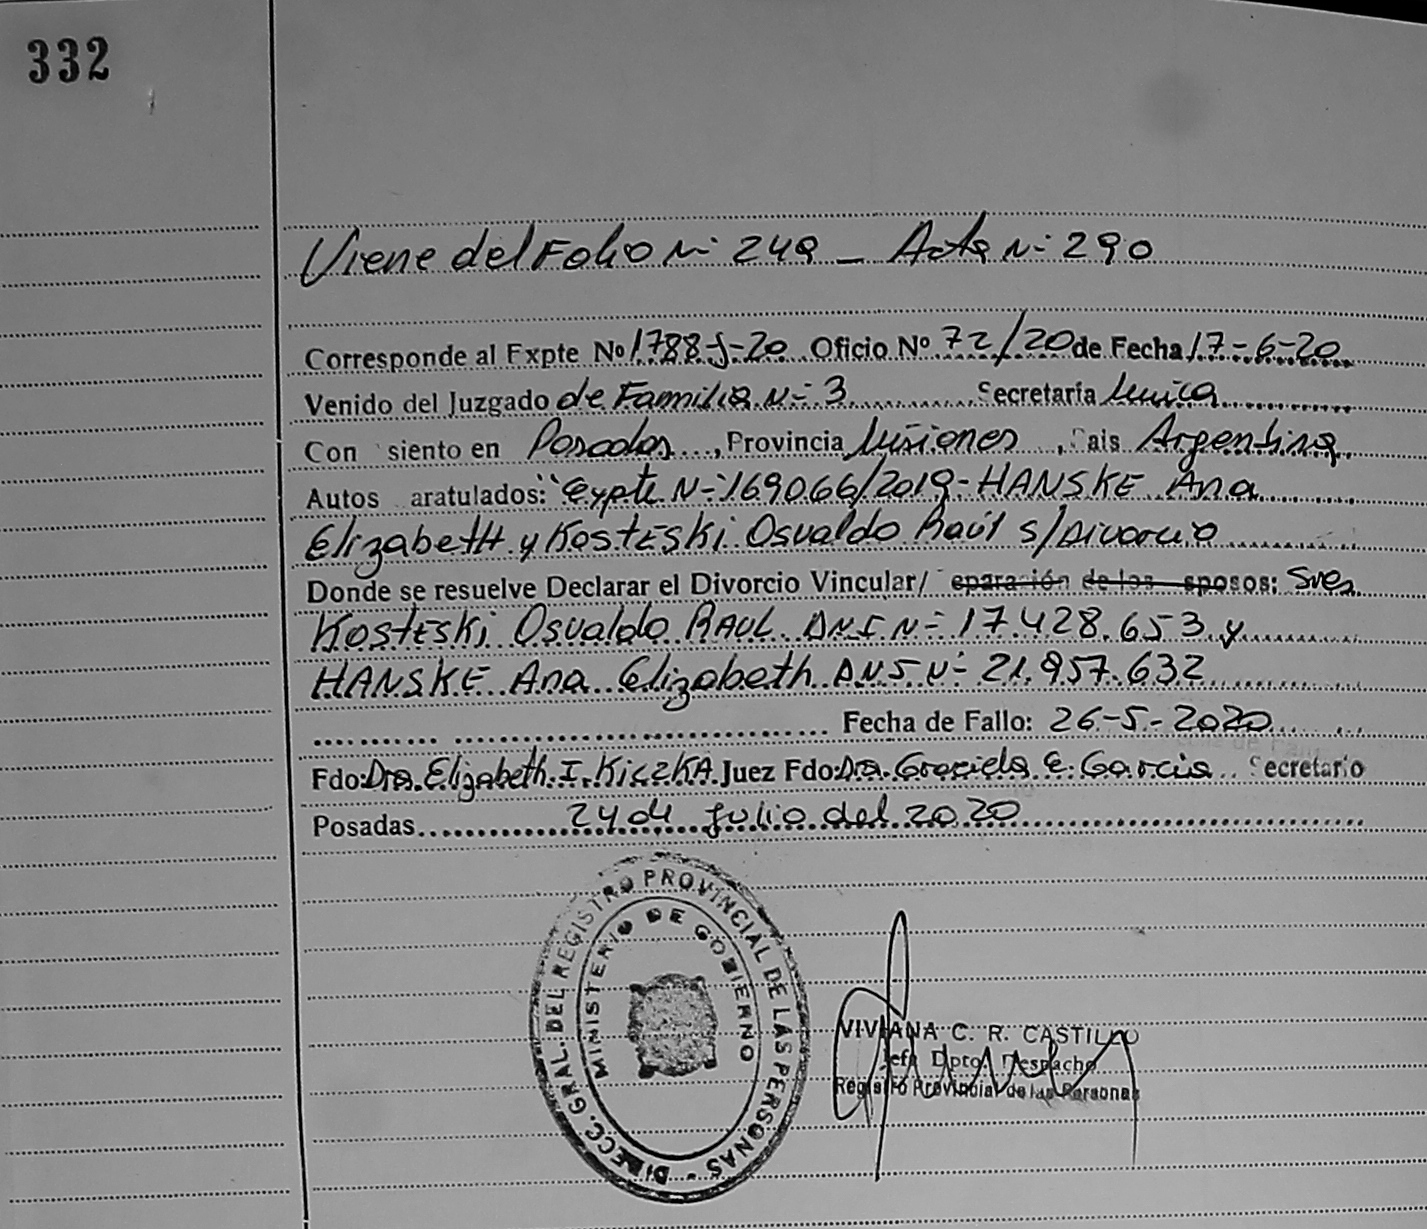 332
Viene del Folio Nº 249 _ Acta Nº 290
Corresponde al Expte Nº 1788-J-20 Oficio Nº 72/20 de Fecha 17-6-20
Venido del Juzgado de Familia Nº 3 Secretaría Unica
Con siento en Posadas, Provincia Misiones, Pais Argentina
Autos aratulados: "Expte Nº 169066/2019-HANSKE Ana
Elizabeth y Kosteski Osvaldo Raúl s/Divorcio
Donde se resuelve Declarar el Divorcio Vincular/ eparación de los sposos: Sres
Kosteski Osvaldo RAUL DNI Nº 17.428.653 y
HANSKE Ana Elizabeth D.N.I Nº 21.957.632
Fecha de Fallo: 26-5-2020
Fdo: Dra. Elizabeth I. KiczKA Juez Fdo: Dra. Graciela E. Garcia Secretario
Posadas 24 de Julio del 2020
DIRECC. GRAL. DEL REGISTRO PROVINCIAL DE LAS PERSONAS -
MINISTERIO DE GOBIERNO
VIVIANA C. R. CASTILLO
Jefa Dpto. Despacho
Registro Provincial de las Personas